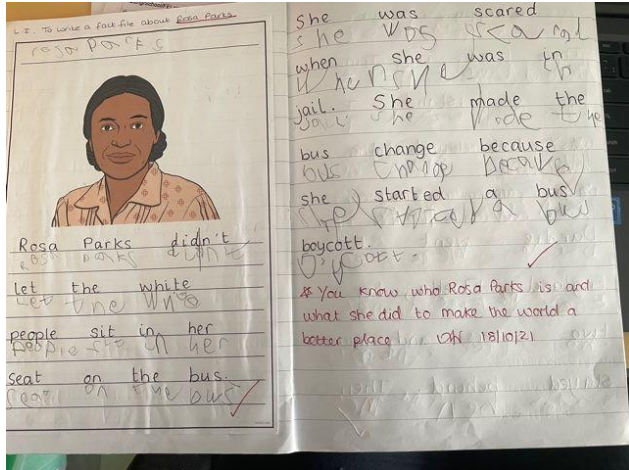 L.I. To write a fact file about Rosa Parks
rosa parks
Rosa Parks didn't
rosa parks didnt
let the white
Let the
people sit in her
people sit in her
seat on the bus.
seat on the bus
She was scared
she was scared
when she was in
when she was in
jail. She made the
jail she made the
bus change because
bus change because
she started a bus
she started a bus
boycott.
boycott.
* You know who Rosa Parks is and
what she did to make the world a
better place 18/10/21